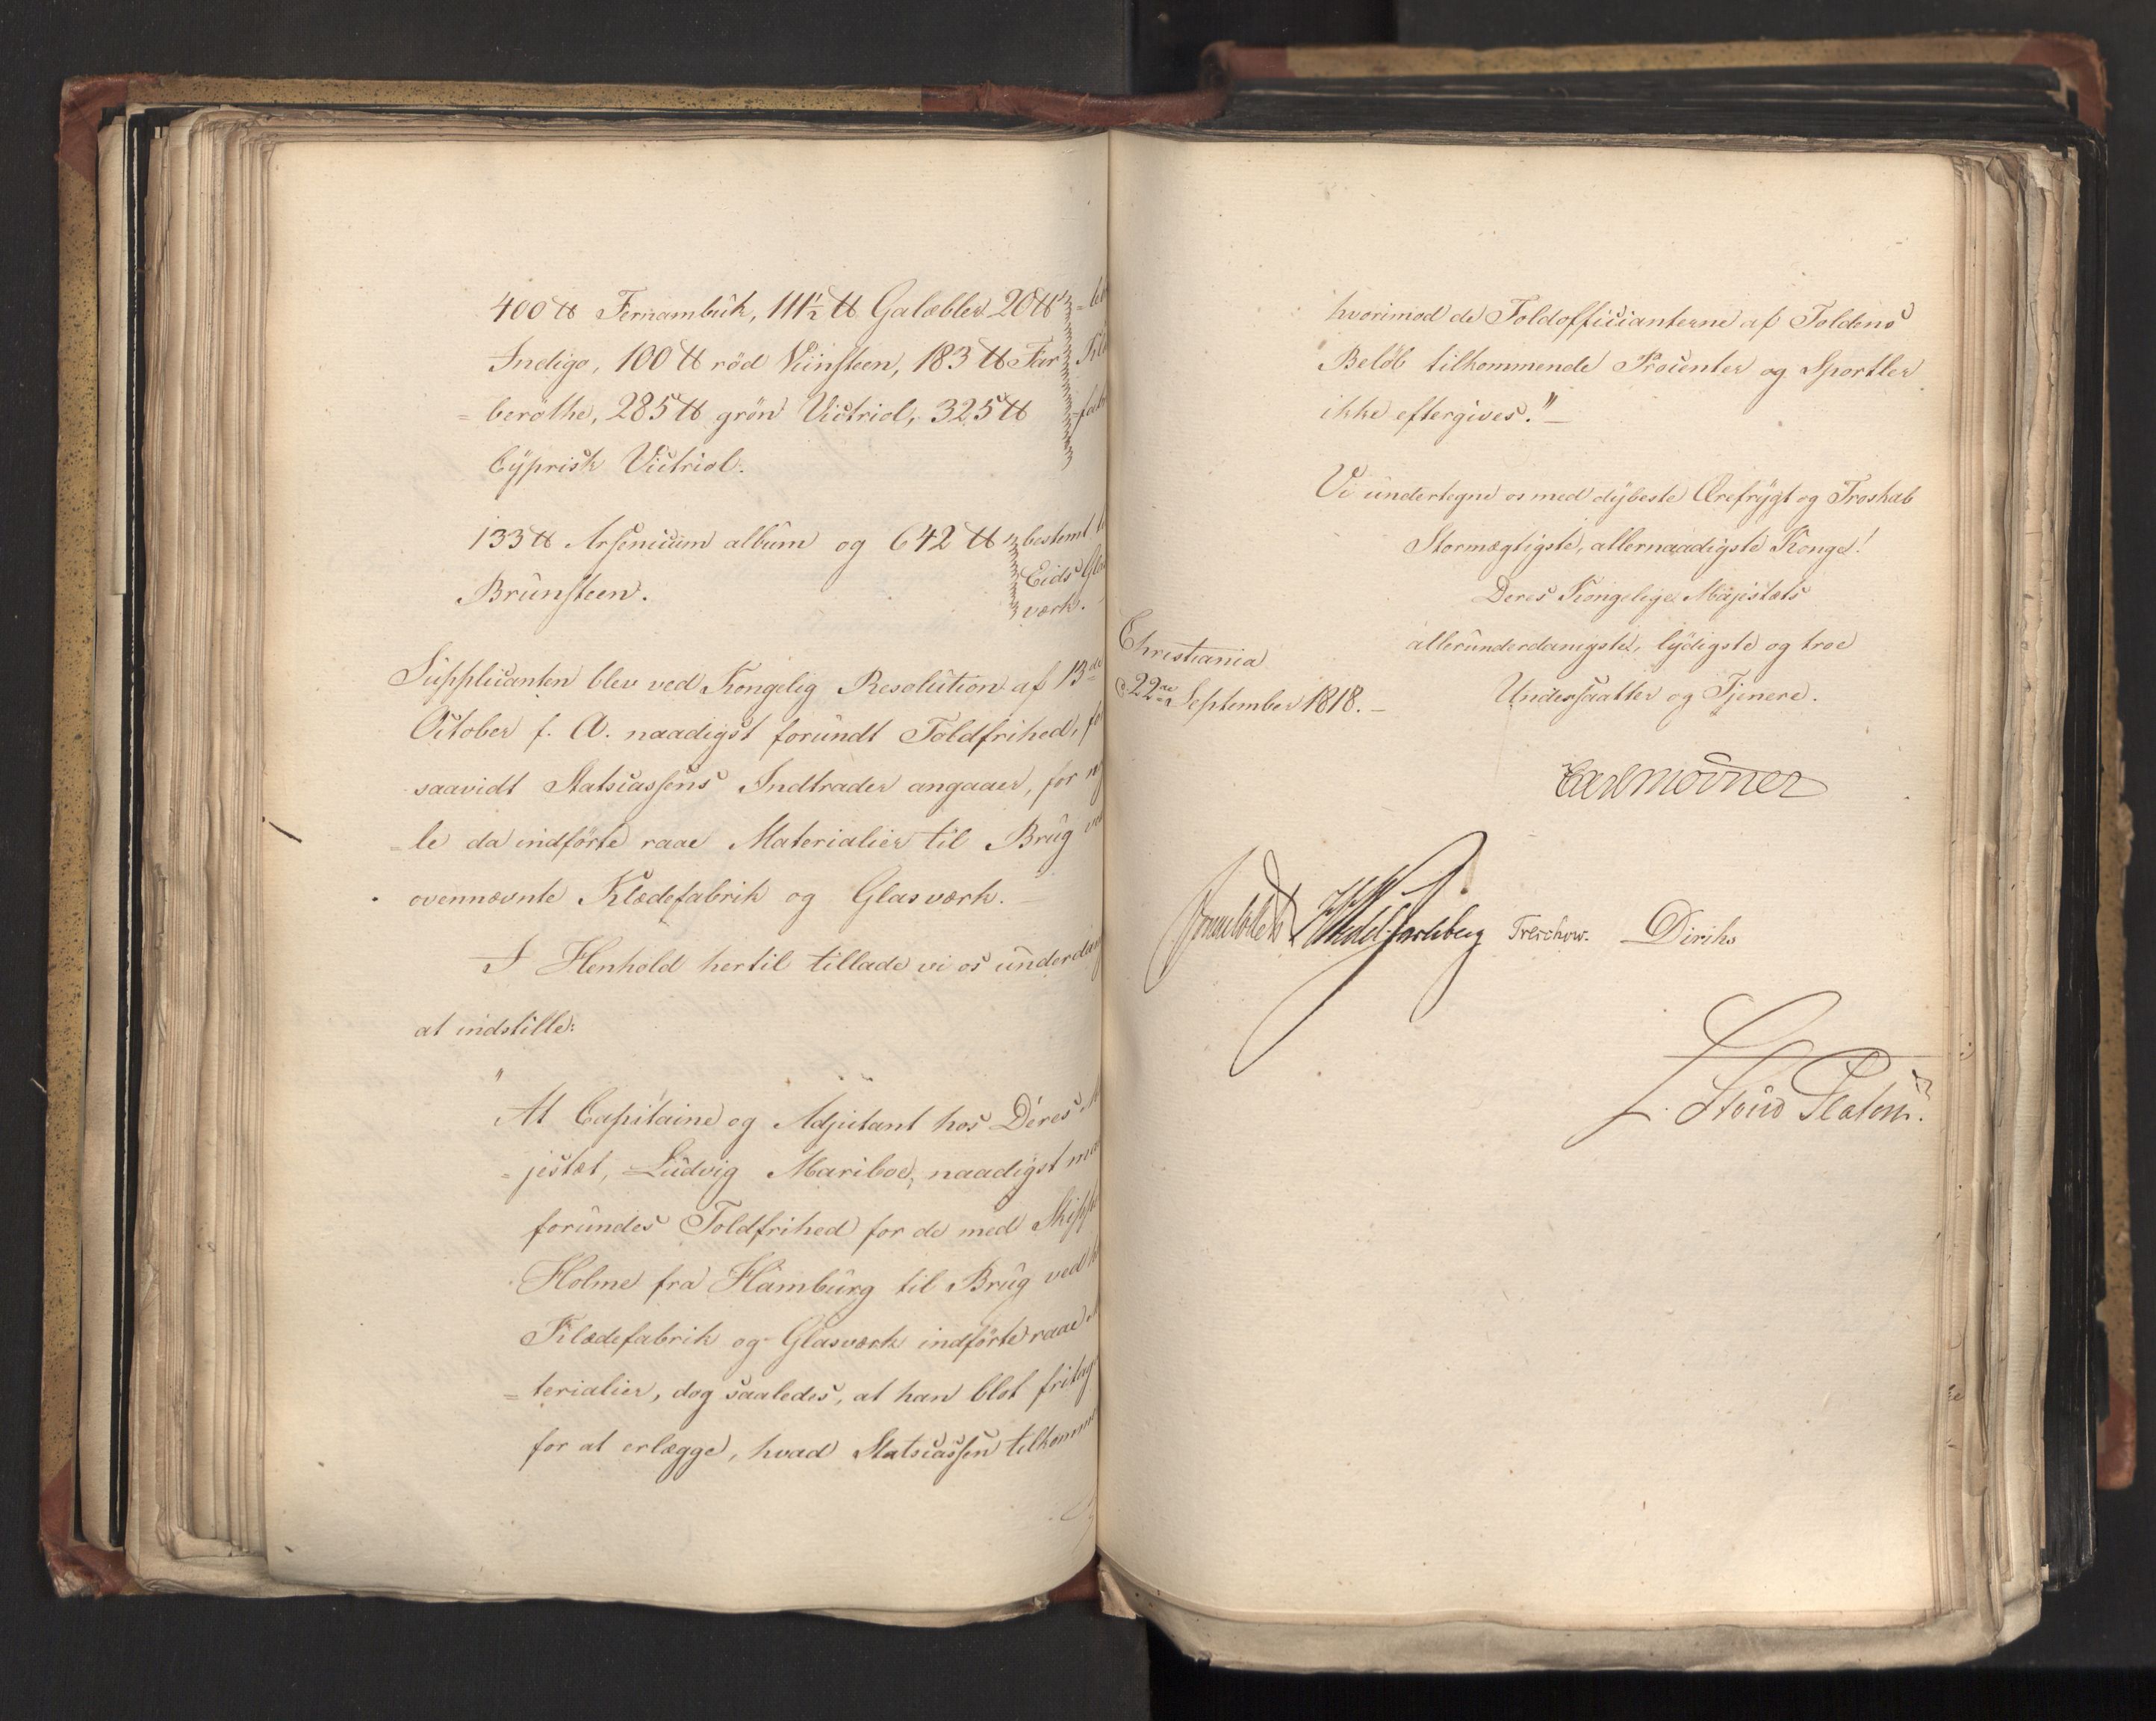 400 ℔ Fernambuk, 111½ ℔ Galæbler 20 ℔
Indigo, 100 ℔ röd Viinsteen, 183 ℔ Far
= beröthe, 285 ℔ grön Victriol, 325 ℔
Cyprisk Victriol.
133 ℔ Arsenicum album og 642 ℔ bestemt
Brunsteen.
Eids
værk.
Supplicanten blev ved Kongelig Resolution af 13de
October f. A. naadigst forundt Toldfrihed,
saavidt Statscassens Indtrader angaaer, for
= le da indförte raae Materialier til Brug
ovennævnte Klædefabrik og Glasværk. —
I Henhold hertil tillade vi os
at indstille:
" At Capitaine og Adjutant hos Deres
= jestæt, Ludvig Mariboe, naadigst
forundes Toldfrihed for de med
Holme fra Hamburg til Brug ved
Klædefabrik og Glasværk indförte raae
= terialier, dog saaledes, at han blot
for at erlægge, hvad Statscassen
hvorimod de Toldofficianterne af Toldens
Belöb tilkommende Procenter og Sportler
ikke eftergives." —
Vi undertegne os med dybeste Ærefrygt og Troskab
Stormægtigste, allernaadigste Konge!
Deres Kongelige Majestæts
allerunderdanigste, lydigste og troe
Undersaatter og Tjenere.
Christiania
d. 22de September 1818. —
Carl Mörner
Sommerhielm HWedel Jarlsberg Treschow. Diriks
L. Stoud Platou.